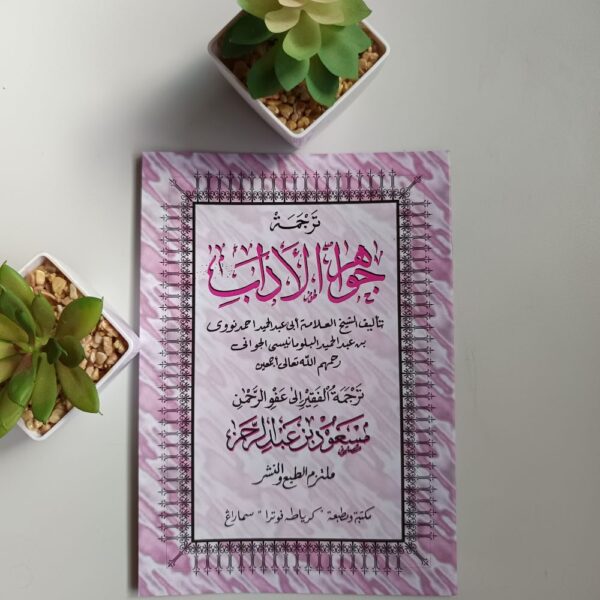 تَرْجَمَةُ
جَوَاهِرُ الْأَدَابِ
بتأليف الشيخ العلامة أبى عبد الحميد احمد نووى
بن عبد الحميد البلومانيسى الجوانى
رحمهم الله تعالى أجمعين
تَرْجَمَةُ الْفَقِيْرِ إِلَى عَفْوِ الرَّحْمٰنِ
مَسْعُوْد بْن عَبْدِ الرَّحْمٰن
ملتزم الطبع والنشر
مكتبة ومطبعة "كرياطه فوترا" سماراڠ